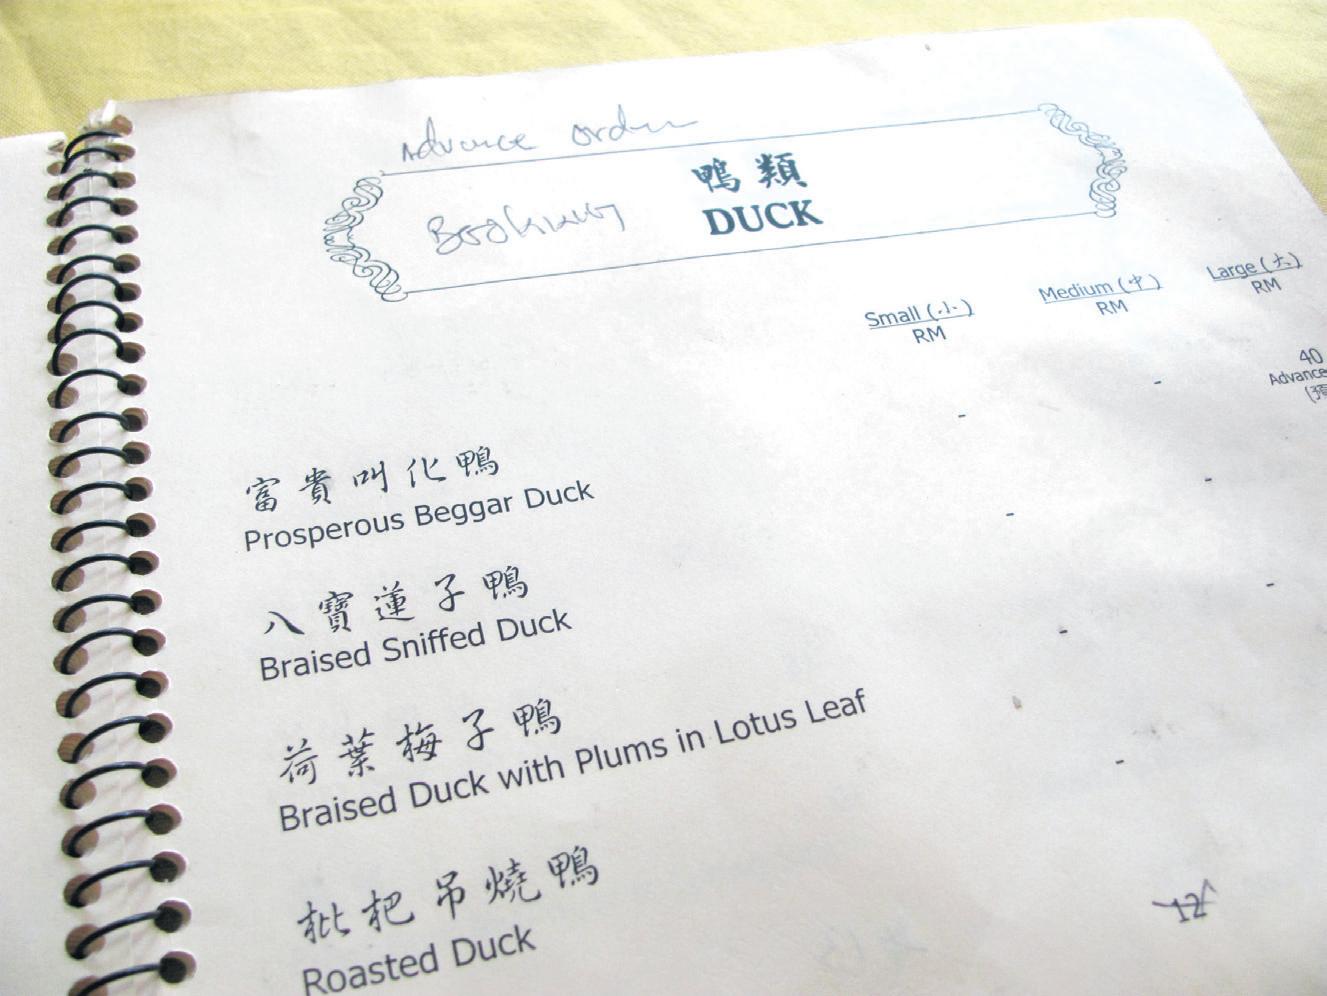 Advance order
鴨類
Booking DUCK
Small (小) Medium (中) Large (大)
RM RM RM
- - 40
Advance
(預
富貴叫化鴨
Prosperous Beggar Duck
- -
八寶蓮子鴨
Braised Sniffed Duck
- -
荷葉梅子鴨
Braised Duck with Plums in Lotus Leaf
-
枇杷吊燒鴨
Roasted Duck